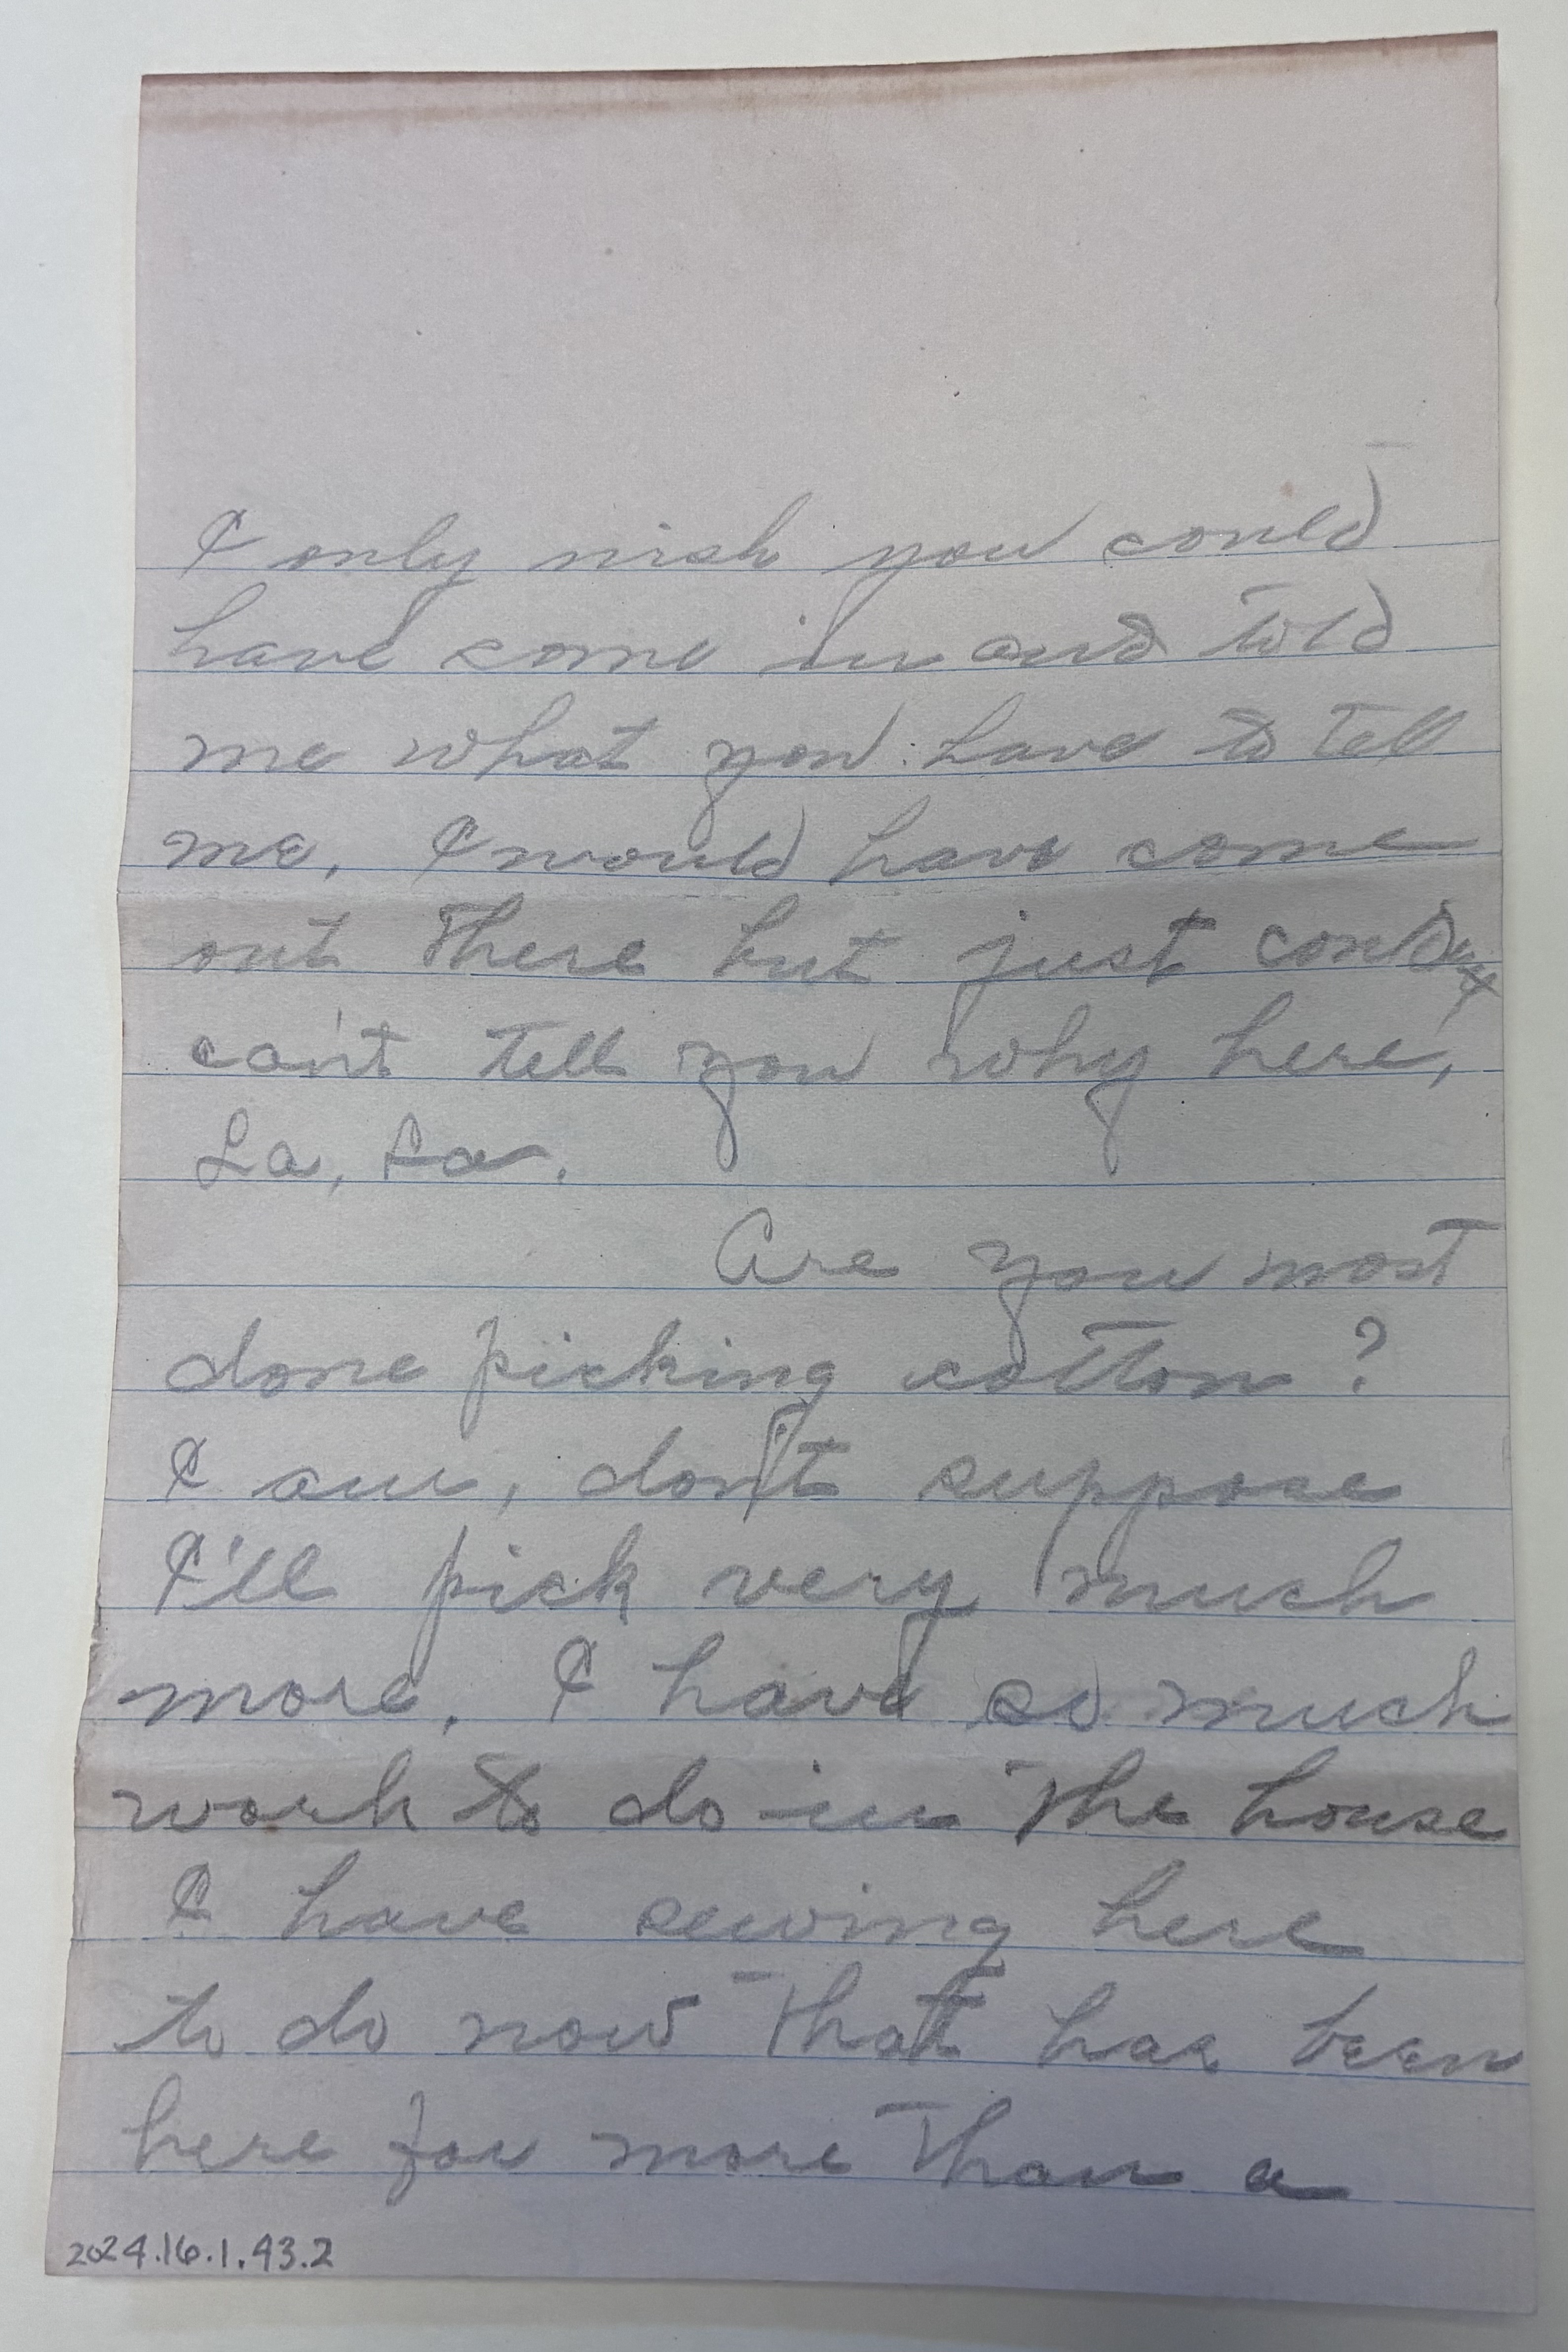 I only wish you could
have come in and told
me what you have to tell
me, I would have come
out there but just couldn't
can't tell you why here,
La, La.
Are you most
done picking cotton?
I am, don't suppose
I'll pick very much
more. I have so much
work to do in the house
I have sewing here
to do now that has been
here for more than a
2024.16.1.43.2